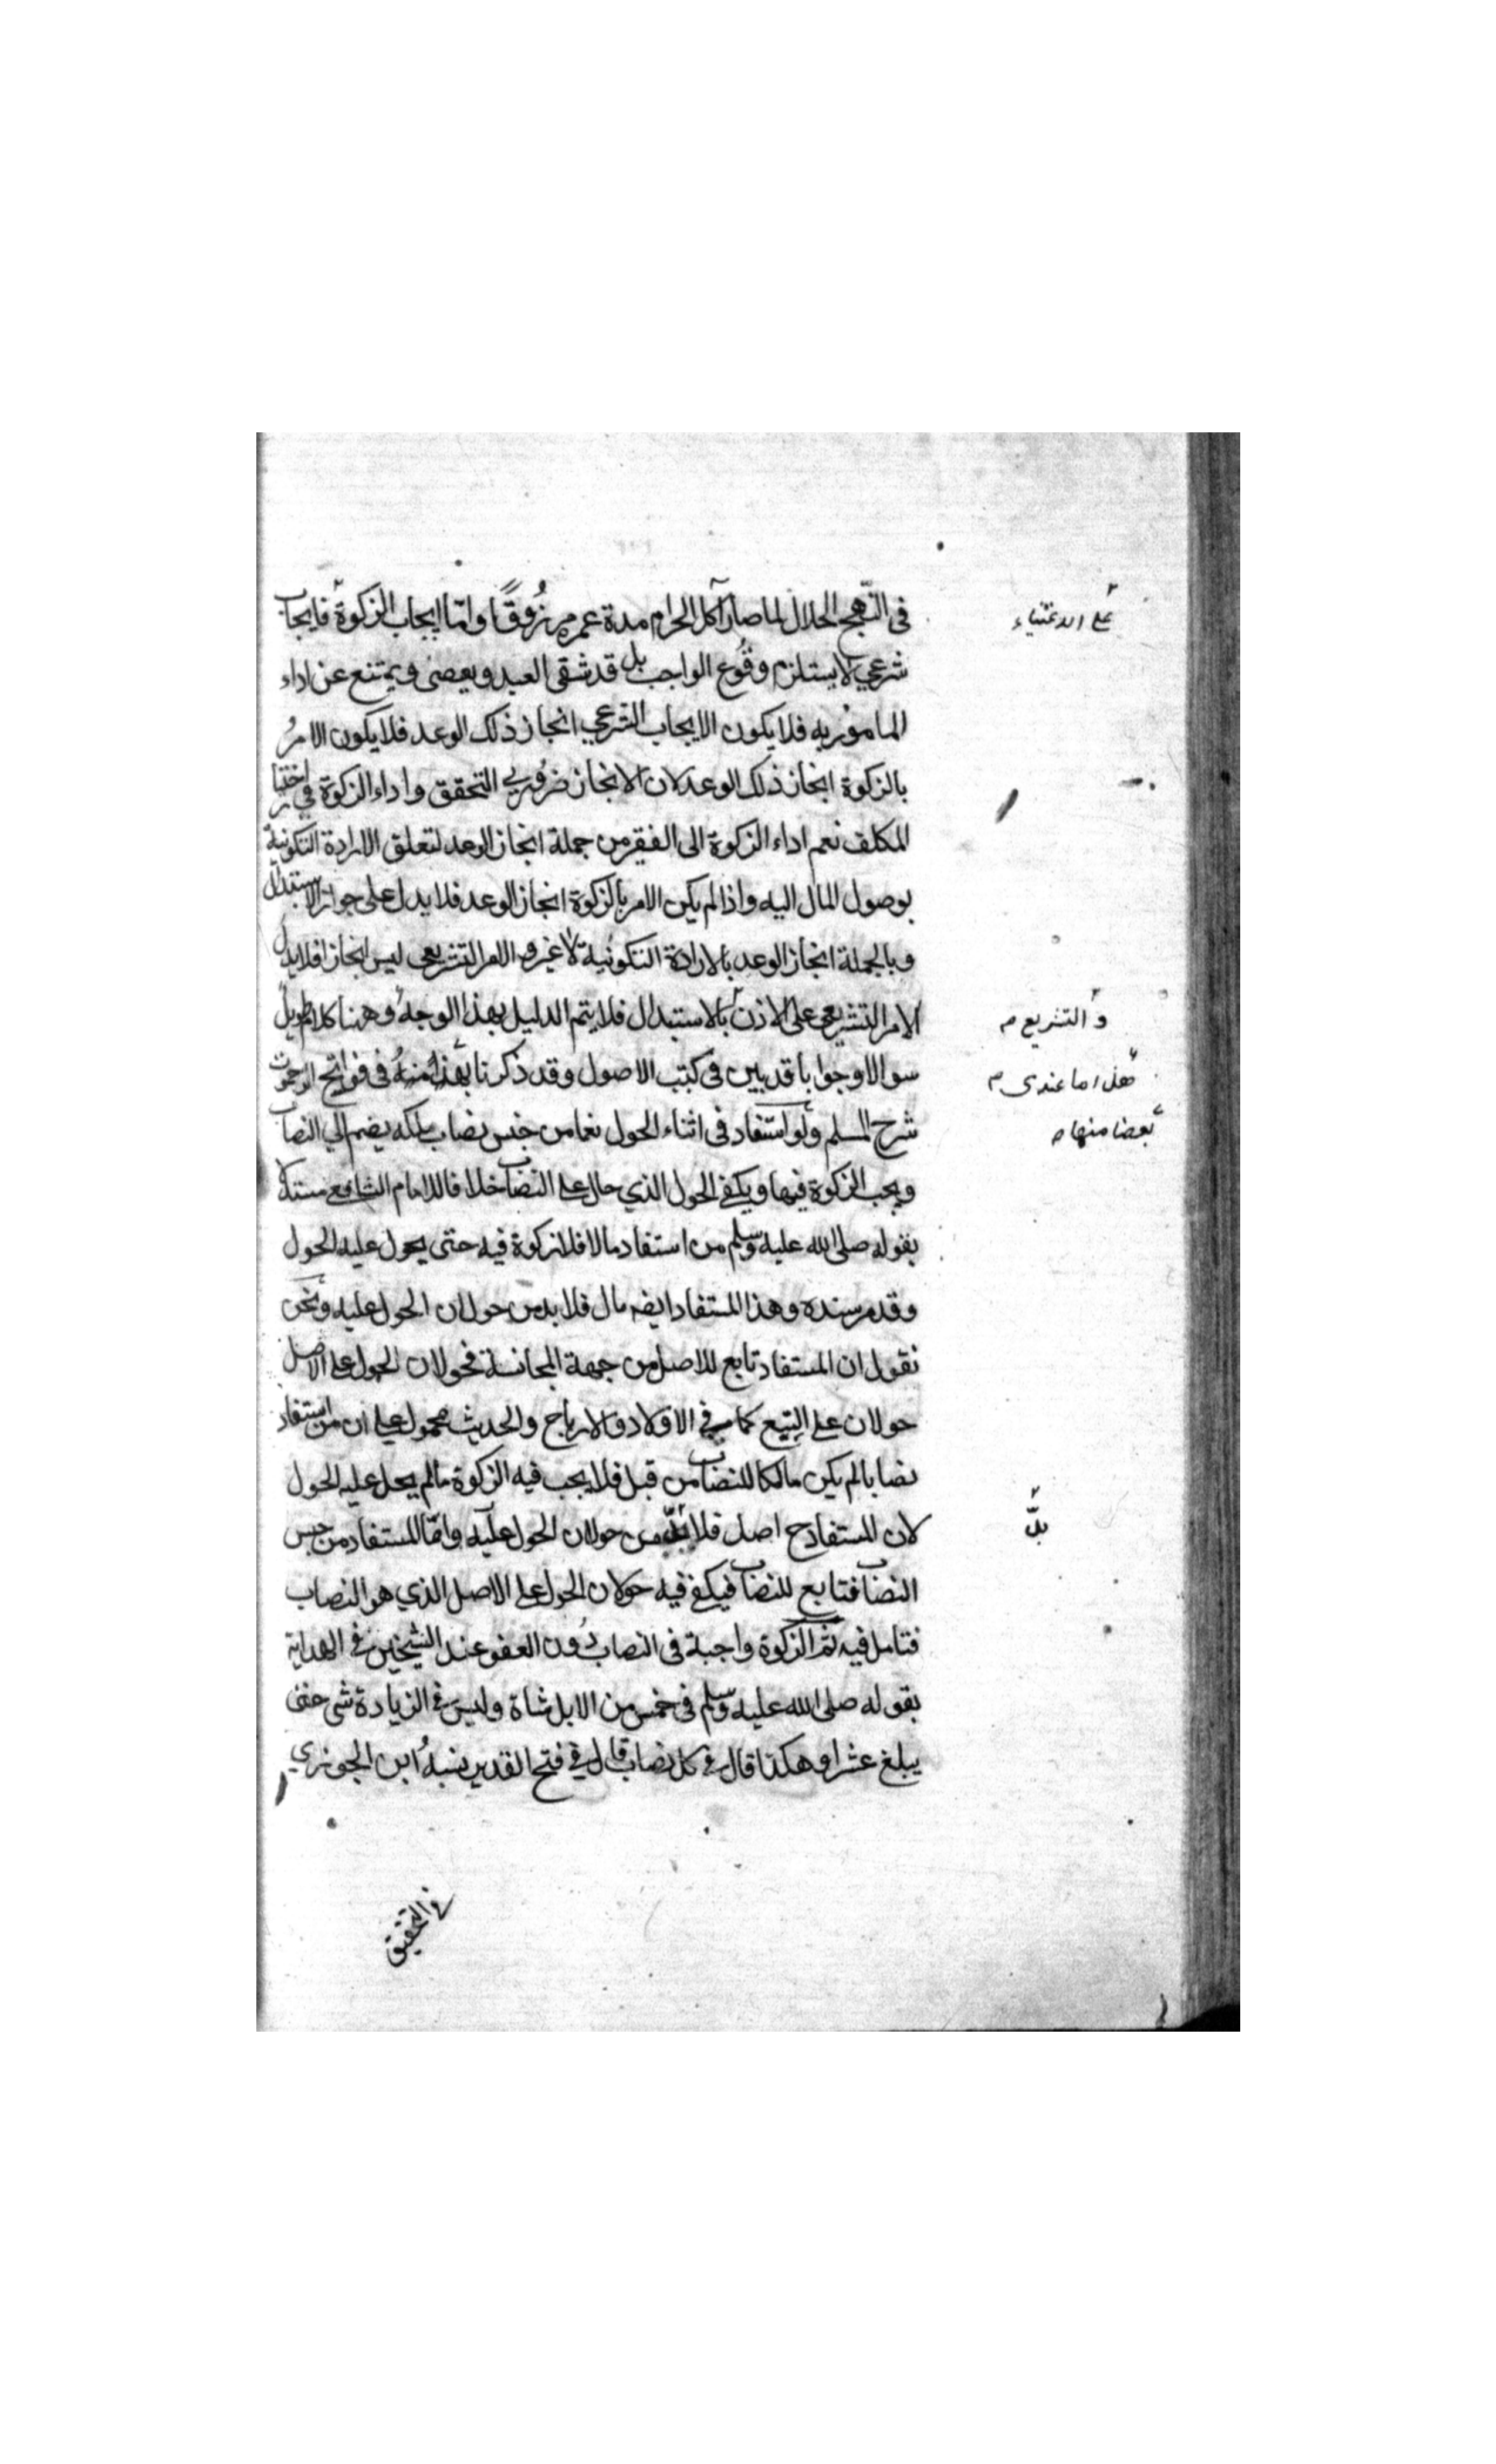 في النهج الحلال لما صار آكل الحرام مدة عمره مرزوقًا واما ايجاب الزكوة فايجاب
شرعي لا يستلزم وقوع الواجب بل قد شقى العبد ويعصى ويمتنع عن اداء
المامور به فلا يكون الايجاب الشرعي انجاز ذلك الوعد فلا يكون الامرُ
بالزكوة انجاز ذلك الوعد لان الانجاز ضروري التحقق واداء الزكوة في اختيار
المكلف نعم اداء الزكوة الى الفقير من جملة انجاز الوعد لتعلق الارادة التكونية
بوصول المال اليه واذا لم يكن الامر بالزكوة انجاز الوعد فلا يدل على جواز الاستبدال
وبالجملة انجاز الوعد بالارادة التكونية لا غير والامر التشريعي ليس انجازا فلا يدل
الامر التشريعي على الاذن بالاستبدال فلا يتم الدليل بهذا الوجه وههنا كلام طويل
سوالا وجوابا قد بين في كتب الاصول وقد ذكرنا في فواتح الرحموت
شرح المسلم ولو استفاد في اثناء الحول نعما من جنس نصاب يملكه يضم الي النصاب
ويجب الزكوة فيها ويكفي الحول الذي حال على النصاب خلافا للامام الشافعي مستدلا
بقوله صلى الله عليه وسلم من استفاد مالا فلا زكوة فيه حتى يحول عليه الحول
وقد مر سنده وهذا المستفاد ايضه مال فلا بد من حولان الحول عليه ونحن
نقول ان المستفاد تابع للاصل من جهة المجانسة فحولان الحول على الاصل
حولان على التبع كما في الاولاد والارباح والحديث محمول على ان من استفاد
نصابا لم يكن مالكا للنصاب من قبل فلا يجب فيه الزكوة ما لم يحل عليه الحول
لان المستفاد ح اصل فلا بدّ من حولان الحول عليه واما المستفاد من جنس
النصاب فتابع للنصاب فيكفي فيه حولان الحول على الاصل الذي هو النصاب
فتامل فيه ثم الزكوة واجبة في النصاب دون العفو عند الشيخين في الهداية
بقوله صلى الله عليه وسلم في خمس من الابل شاة وليس في الزيادة شي حتى
يبلغ عشرا وهكذا قال في كل نصاب قال في فتح القدير نسبهُ ابن الجوزي
في التحقيق
على الاغنياء
والتشريع م
هل اما عندى م
بعضا منها م
بدّ